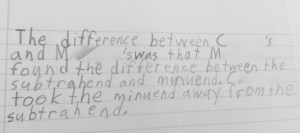 The difference between C 's
and M 's was that M
found the difference between the
subtrahend and minuend. C.
took the minuend away from the
subtrahend.